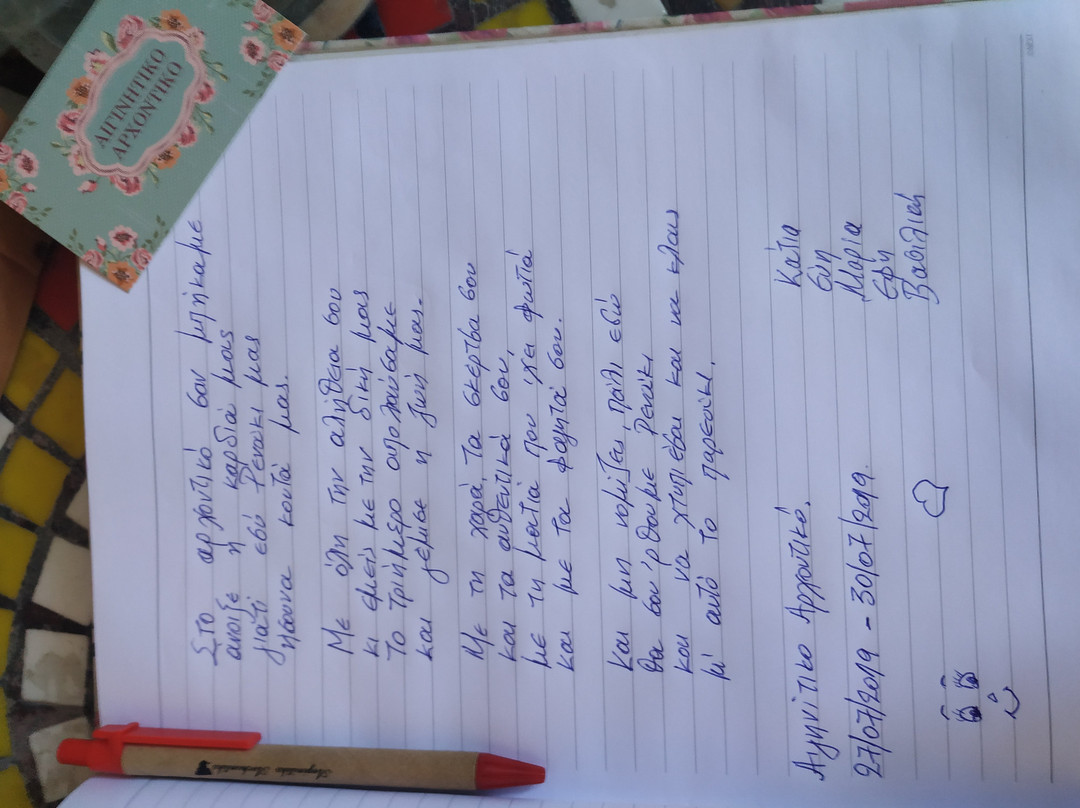 ΑΙΓΙΝΗΤΙΚΟ
ΑΡΧΟΝΤΙΚΟ
Στο αρχοντικό σου μπήκαμε
άνοιξε η καρδιά μας
γιατί εσύ Ρενάκι μας
ήσουνα κοντά μας.
Με όλη την αλήθεια σου
κι εμείς με την δική μας
το τριήμερο απολαύσαμε
και γέμισε η ζωή μας.
Με τη χαρά, τα σκέρτσα σου
και τα αυθεντικά σου,
με τη ματιά που 'χει φωτιά
και με τα φαγητά σου.
Και μη νομίζεις, πάλι εδώ
θα σου 'ρθουμε Ρενάκι
και να χτυπιέσαι και να κλαις
μ' αυτό το παρεάκι.
Αιγηνίτικο Αρχοντικό.
27/07/2019 - 30/07/2019.
Κάτια
Εύη
Μαρία
Έφη
Βασιλική
Aeginitiko Archontiko